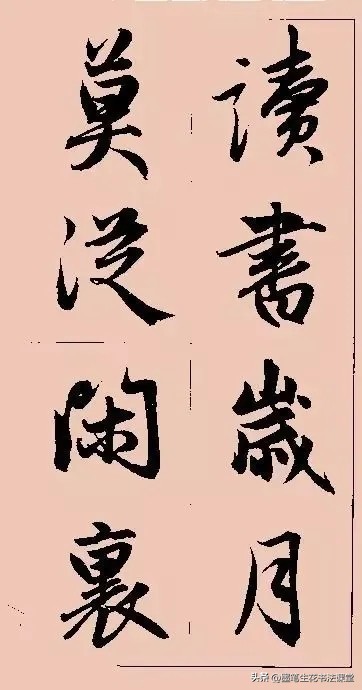 讀書歲月
莫從閑裏
头条@墨笔生花书法课堂